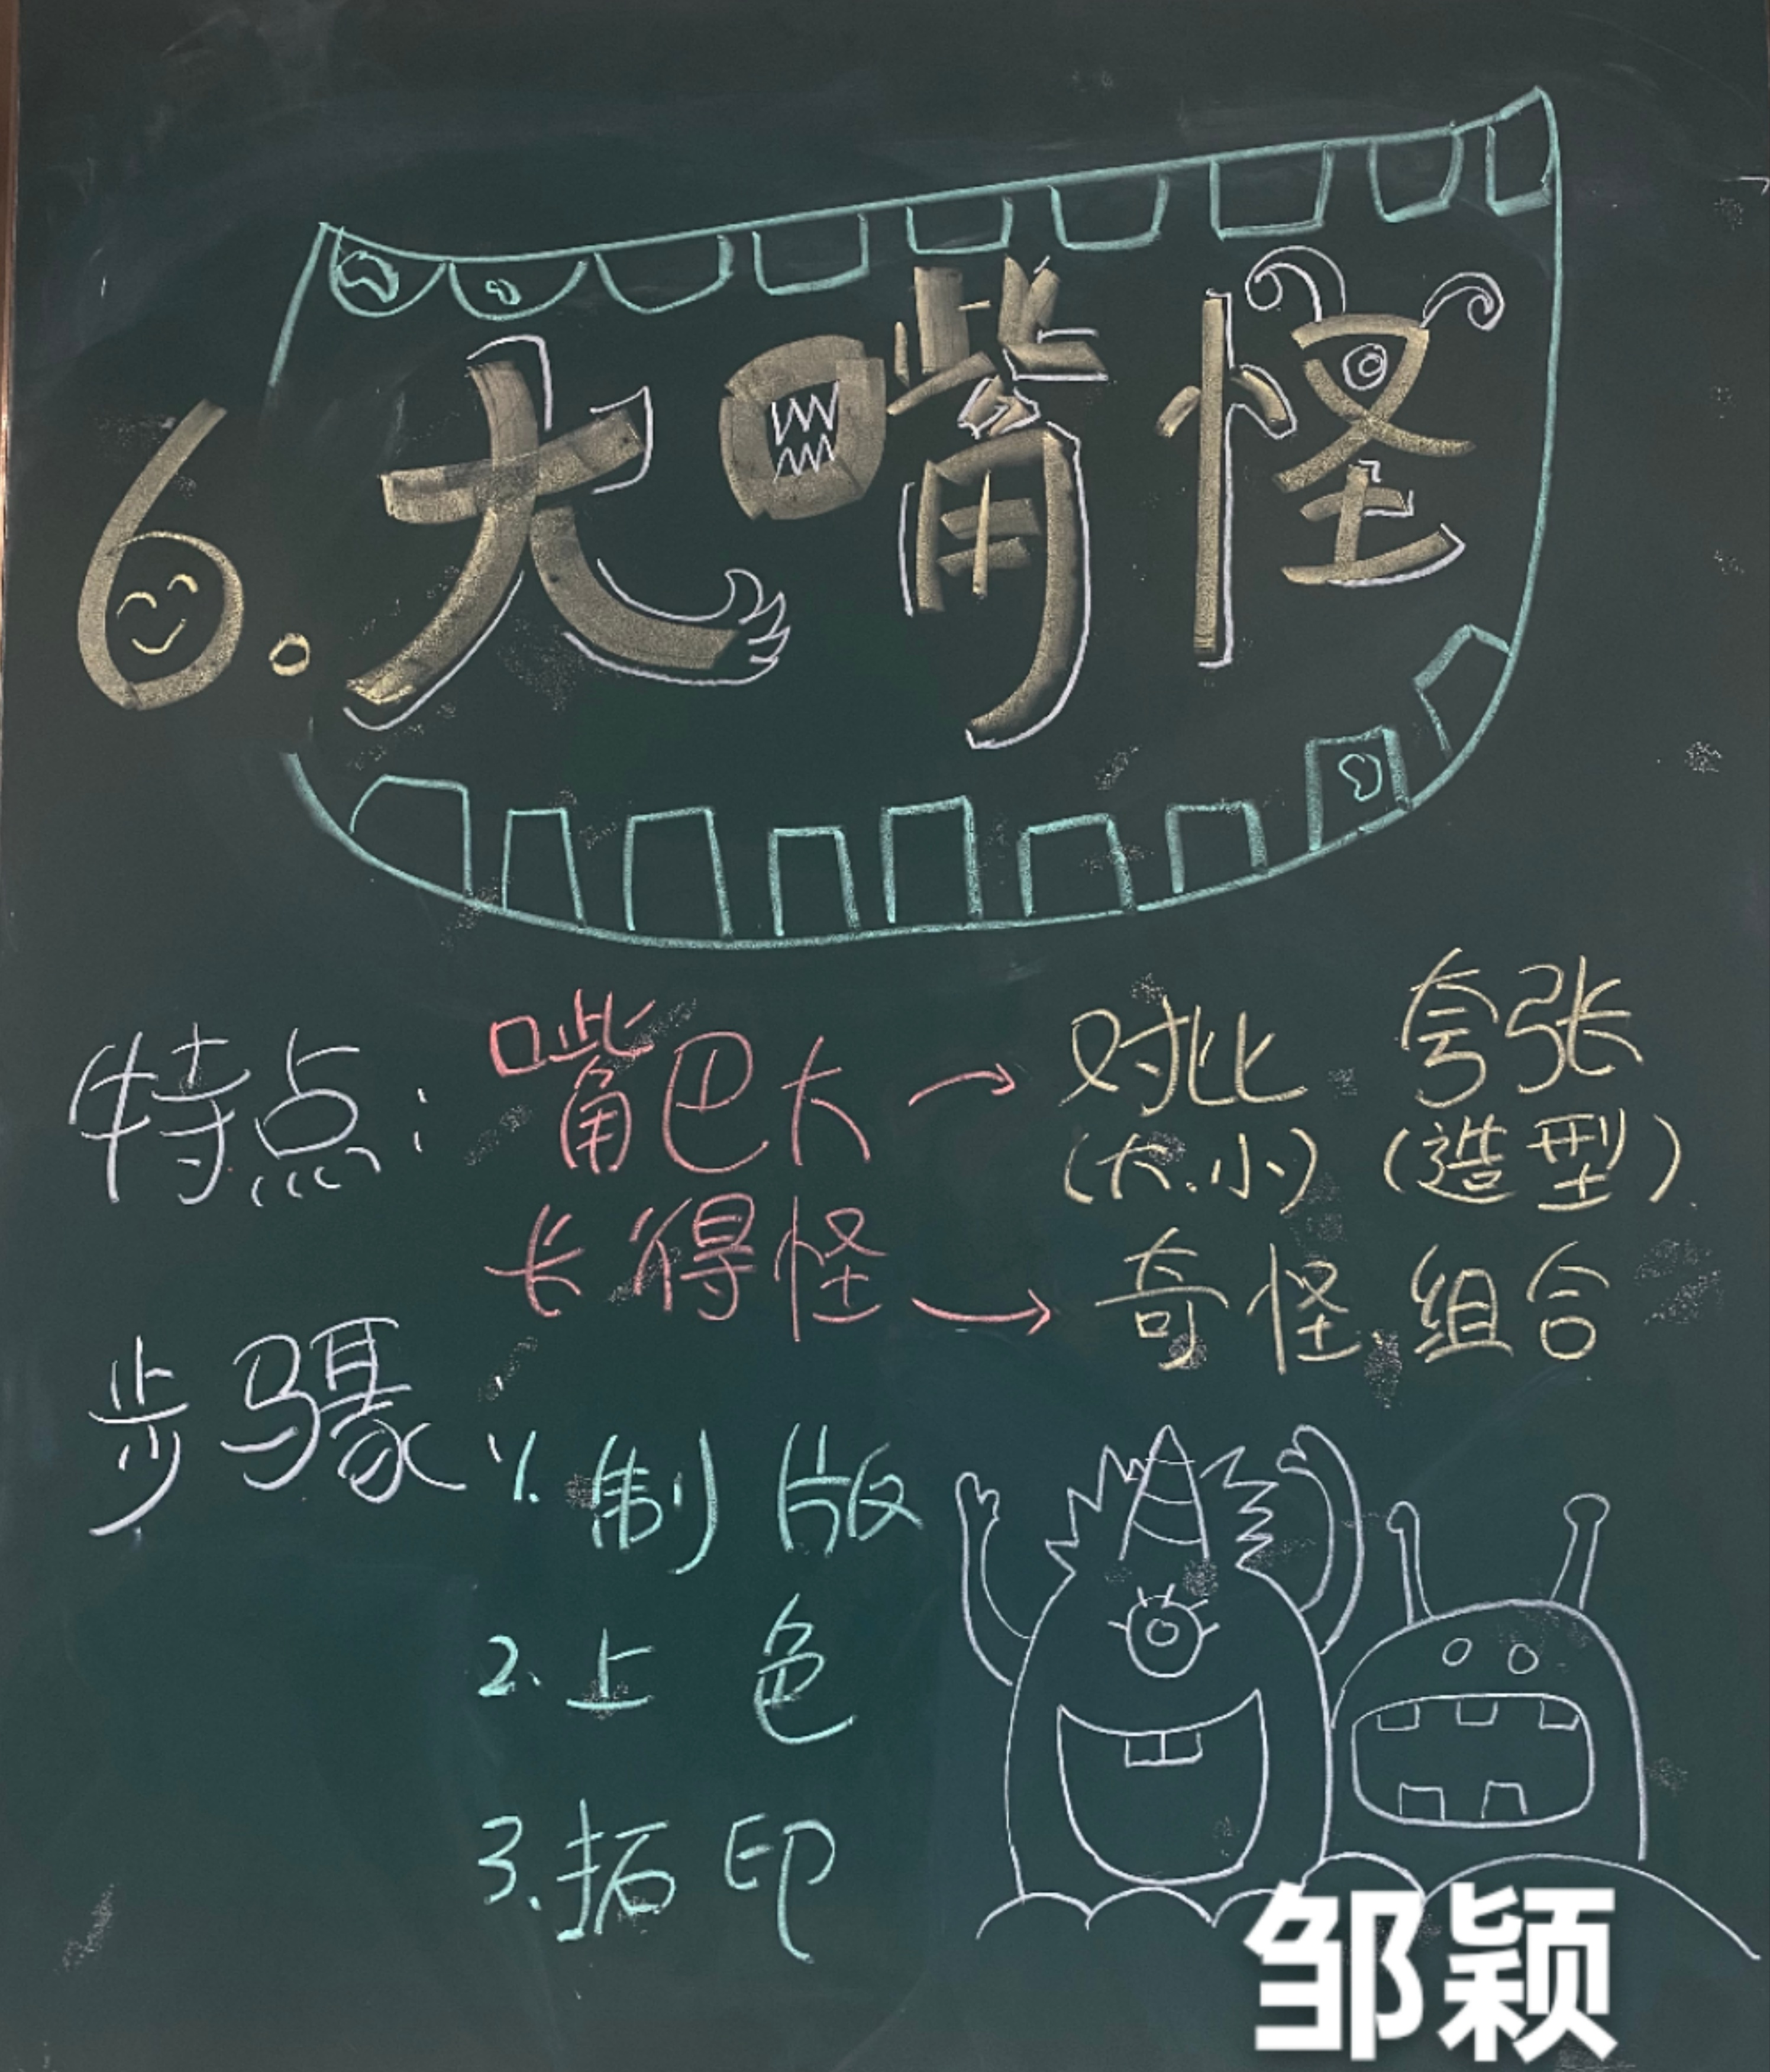 6. 大嘴怪
特点: 嘴巴大 → 对比 夸张
(大.小) (造型)
长得怪 → 奇怪组合
步骤
1. 制版
2. 上色
3. 拓印
邹颖